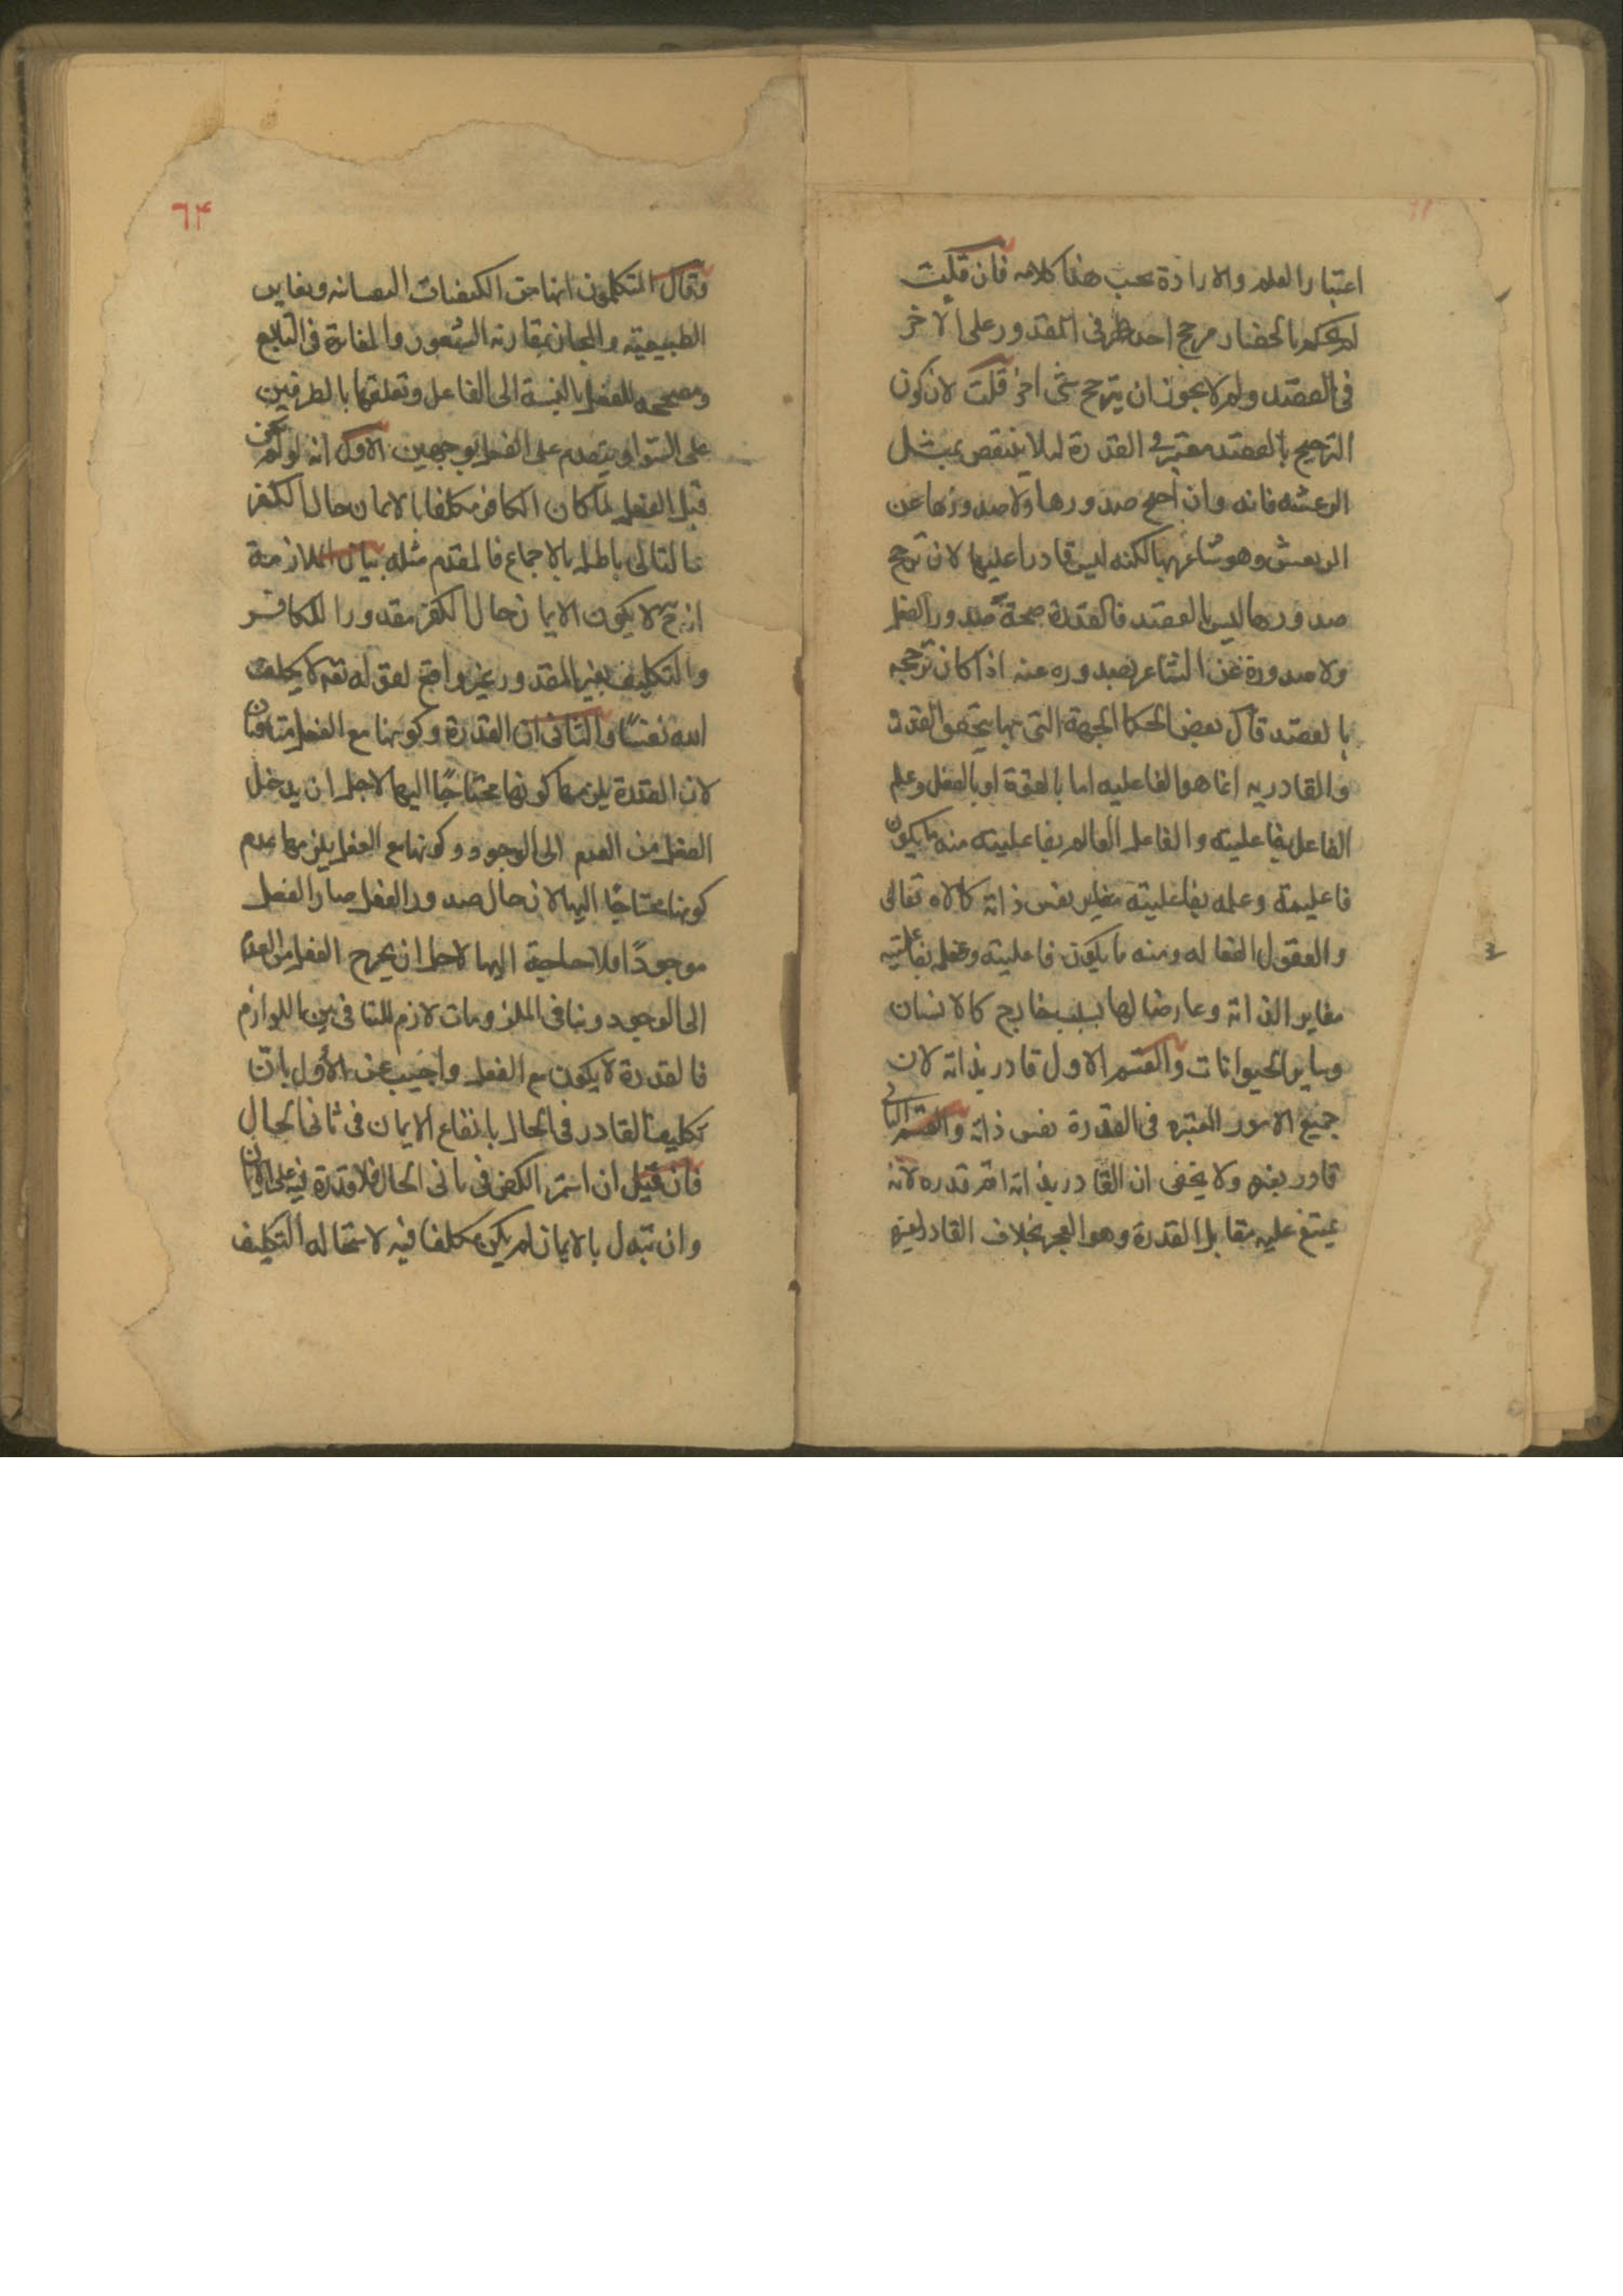 اعتبار العلم والارادة بحب هذا كلامه فان قلت
لم حكم بانحصار مرجح احد طرفى المقدور على الاخر
فى القصد ولم لا يجوز ان يترجح بشئ اخر قلت لان كون
الترجيح بالقصد معتبر فى القدرة لئلا ينتقص بمثل
الرعشه فانه وان صح صدورها ولا صدورها عن
المرتعش وهو شاعر بها لكنه ليس قادرا عليها لان ترجح
صدورها ليس بالقصد فالقدرة صحة صدور الفعل
ولا صدوره عن الشاعر بصدوره عنه اذا كان ترجحه
بالقصد قال بعض الحكما الجهة التى بها يتحقق القدرة
والقادريه انما هو الفاعليه اما بالقوة او بالفعل وعلم
الفاعل بفاعليته والفاعل العالم بفاعليته منه ما يكون
فاعليته وعلمه بفاعليته نفس ذاته كالاله تعالى
والعقول الفعاله ومنه ما يكون فاعليته وعلمه بفاعليته
مغاير الذاته وعارضا لها بسبب خارج كالانسان
وساير الحيوانات والقسم الاول قادر بذاته لان
جميع الامور المعتبره فى القدرة نفس ذاته والقسم الثانى
قادر بغيره ولا يخفى ان القادر بذاته اتم قدره لانه
يمتنع عليه مقابل القدرة وهو العجز بخلاف القادر بغيره
٦۴
وقال المتكلمون انها من الكيفيات النفسانيه ويغاير
الطبيعية والمجان بمقارنة الشعور والمغايرة فى التابع
ومصححه للفعل بالنسبة الى الفاعل وتعلقها بالطرفين
على السوا ويتقدم على الفعل بوجهين الاول انه لو لم يكن
قبل الفعل لما كان الكافر مكلفا بالايمان حال الكفر
فالتالى باطل بالاجماع فالمقدم مثله بيان الملازمة
انه ح لا يكون الايمان حال الكفر مقدورا للكافر
والتكليف بغير المقدور غير واقع لقوله تعم لا يكلف
الله نفسًا والثانى ان القدرة وكونها مع الفعل متنافيان
لان القدرة يلزمها كونها محتاجًا اليها لاجل ان يدخل
الفعل من العدم الى الوجود وكونها مع الفعل يلزمها عدم
كونها محتاجًا اليها لان حال صدور الفعل صار الفعل
موجودًا فلا حاجة اليها لاجل ان يخرج الفعل من العدم
الى الوجود وتنافى الملزومات لازم للتنافى بين اللوازم
فالقدرة لا يكون مع الفعل واجيب عن الاول بان
تكليف القادر فى الحال بايقاع الايمان فى ثانى الحال
فان قيل ان استمر الكفر فى ثانى الحال فلا قدرة فيه على الايمان
وان تبدل بالايمان لم يكن مكلفا فيه لاستحالة التكليف